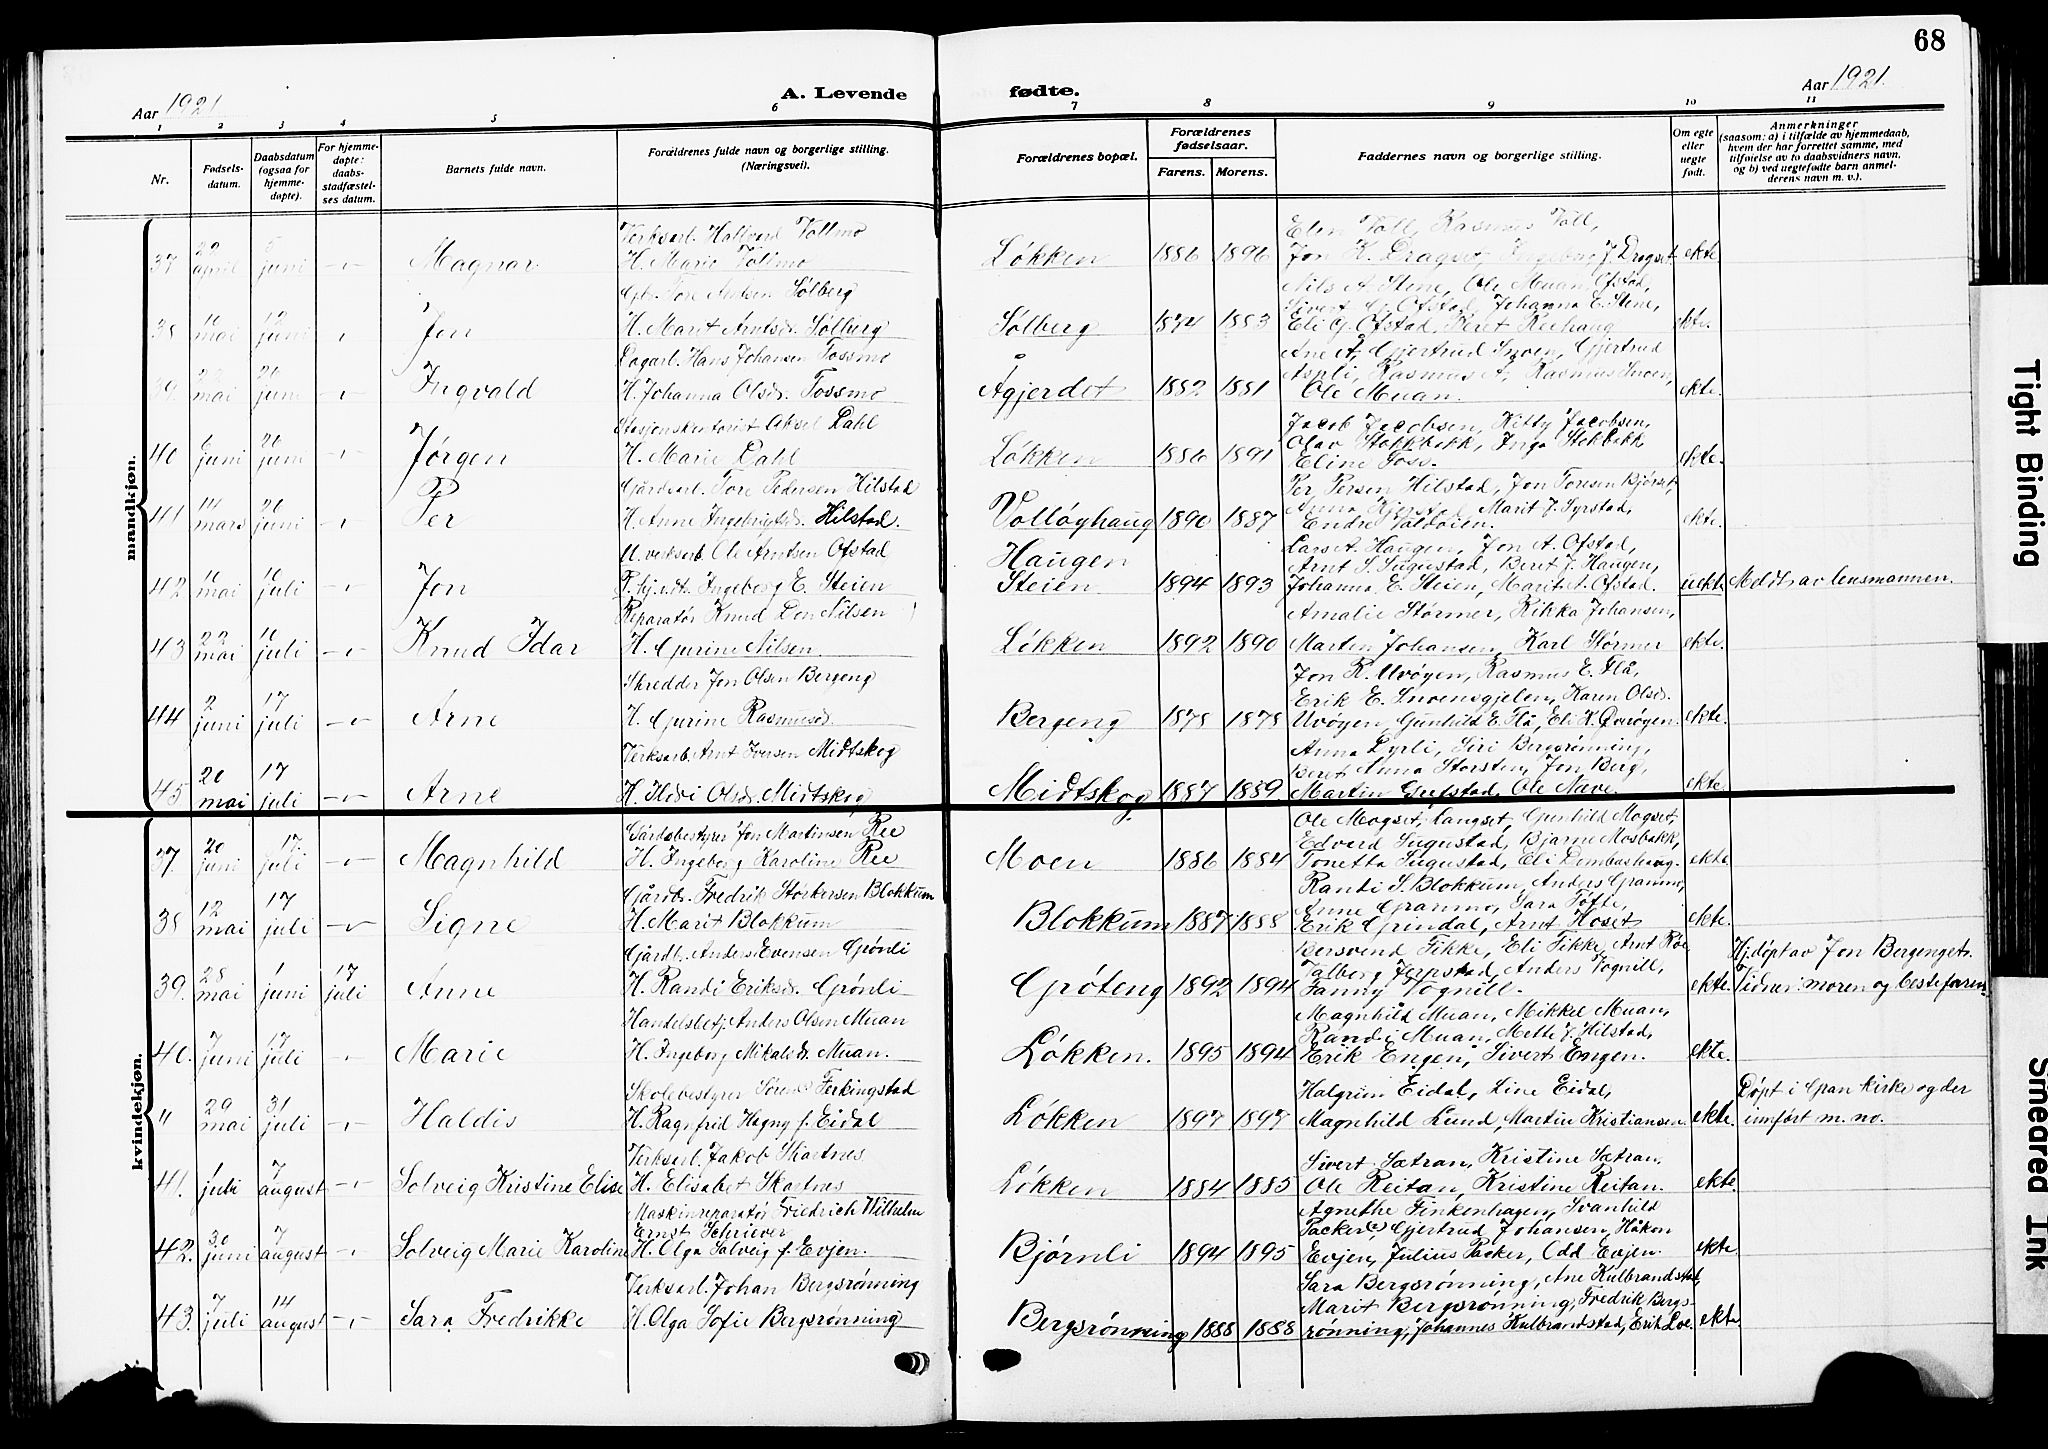 68
Aar 1921
A. Levende fødte.
Aar 1921.
1 2 3 4 5 6 7 8 9 10 11
Nr.
Fødsels-
datum.
Daabsdatum
(ogsaa for
hjemme-
døpte).
For hjemme-
døpte:
daabs-
stadfæstel-
ses datum.
Barnets fulde navn.
Forældrenes fulde navn og borgerlige stilling.
(Næringsvei).
Forældrenes bopæl.
Forældrenes
fødselsaar.
Farens. Morens.
Faddernes navn og borgerlige stilling.
Om egte
eller
uegte
født.
Anmerkninger
(saasom: a) i tilfælde av hjemmedaab,
hvem der har forrettet samme, med
tilføielse av to daabsvidners navn,
og b) ved uegtefødte barn anmel-
derens navn m. v.).
mandkjøn.
Verksarb. Hallverd Vollmo Elen Voll, Rasmus Voll,
37 29 april 5 juni Magnar H. Marie Vollmo Løkken 1886 1896 Jon K. Dragset, Ingeborg J. Dragset ekte
Gb. Tore Arntsen Solberg Nils A. Stene, Ole Muan, Ofstad,
Sivert G. Ofstad, Johanna E. Stene,
38 16 mai 12 juni Jon H. Marit Arntsd. Solberg Solberg 1874 1883 Eli G. Ofstad, Beret ekte.
Dagarb. Hans Johansen Fossmo Ane A, Gjertrud Snoen, Gjertrud
Aspli, Rasmus A, Rasmus Snoen,
39 mai 26 juni Ingvald H. Johanna Olsd. Fossmo Ågjerdet 1882 1881 Ole Muan. ekte.
Stasjonskontorist Aksel Dahl Jacob Jacobsen, Kitty Jacobsen,
Olav Stokkbekk, Inga Stokbekk
40 6 juni 26 juni Jørgen H. Marie Dahl Løkken 1886 1891 Eline Foss. ekte.
Gårdsarb. Tore Pedersen Hilstad Per Persen Hilstad, Jon Toresen Bjørset,
Anna Hilstad, Marit J. Syrstad,
41 14 mars 26 juni Per H. Anne Ingebrigtsd. Hilstad. Volløyhaug 1890 1887 Endre Voldøien. ekte.
U. verksarb. Ole Arntsen Ofstad Haugen Lars A. Haugen, Jon A. Ofstad,
Arnt S. Sugustad, Beret J. Haugen,
42 16 mai 10 juli Jon P. tj. ugt. Ingeborg E. Steien Steien 1894 1893 Johanna E. Steien, Marit A. Ofstad. uekte Meldt av lensmannen.
Reparatør Knud Don Nilsen Amalie Størmer, Rikka Johansen,
43 22 mai 10 juli Knud Idar H. Gurine Nilsen. Løkken 1892 1890 Marten Johansen, Karl Størmer ekte.
Skredder Jon Olsen Bergeng Jon R. Uvøyen, Rasmus E. Flå,
Erik E. Snoensgjelen, Karen Olsd.
44 2 juni 17 juli Arne H. Gurine Rasmusd. Bergeng 1878 1878 Uvøyen, Gunhild E. Flå, Eli K. Øvrøyen. ekte.
Verksarb. Arnt Iversen Midtskog Anna Dyrli, Siri Bergsrønning,
Beret Anna Storsten, Jon Berg,
45 20 mai 17 juli Arne H. Ildri Olsd. Midtskog Midtskog 1887 1889. Martin Grefstad, Ole Næve. ekte.
kvindekjøn.
Gårdsbestyrer Jon Martinsen Ree Ole Mogset, Langset, Gunhild Mogset,
Edvard Sugustad, Bjarne Mosbakk,
37. 20 juni 17. juli Magnhild H. Ingeborg Karoline Ree Moen 1886 1884 Tonetta Sugustad, Eli Dombashaug. ekte.
Gårdb. Fredrik Størkersen Blokkum Randi S. Blokkum, Anders Gramo,
Anne Granmo, Sara Tøfte,
38 12 mai 17 juli Signe H. Marit Blokkum Blokkum 1887 1888 Erik Grindal, Arnt Hoset ekte.
Gårdb. Anders Evensen Grønli Bersvend Fikke, Eli Fikke, Arnt Røe, Hj.døpt av Jon Bergenget.
Valborg Jerpstad, Anders Vognill,
39. 28 mai 1 juni 17 juli Anne H. Randi Eriksd. Grønli Grøteng 1892 1894 Fanny Vognill. ekte. Vidner: moren og bestefaren
Handelsbetj. Anders Olsen Muan Magnhild Muan, Mikkel Muan,
Randi Muan, Mette J. Hilstad,
40. 7 juni 17 juli Marie H. Ingeborg Mikalsd. Muan. Løkken. 1895 1894 Erik Engen, Sivert Engen. ekte.
Skolebestyrer Søren Ferkingstad Halgrim Eidal, Line Eidal, Døpt i Gran kirke og der
" 29 mai 31 juli Haldis H. Ragnfrid Hagny f. Eidal Løkken 1897 1897 Magnhild Lund, Martin Kristiansen ekte. innført m. no.
Verksarb. Jakob Skartnes Sivert Sætran, Kristine Sætran,
41. 1 juli 7 august Solveig Kristine Elise H. Elisabet Skartnes Løkken 1884 1885 Ole Reitan, Kristine Reitan. ekte.
Maskinreparatør Friedrich Wilhelm Agnethe Finkenhagen, Svanhild
Ernst Schriever Packer, Gjertrud Johansen, Håkon
42. 30 juni 7 august Solveig Marie Karoline H. Olga Solveig f. Evjen. Bjørnli 1894 1895 Evjen, Julius Packer, Odd Evjen. ekte
Verksarb. Johan Bergsrønning Sara Bergsrønning, Ane Kulbrandstad,
Marit Bergsrønning, Fredrik Bergs-
43. 7 juli 14 august Sara Fredrikke H. Olga Sofie Bergsrønning Bergsrønning 1888 1888 rønning, Johannes Kulbrandstad, Erik Loe. ekte.
Tight Binding
Smeared Ink